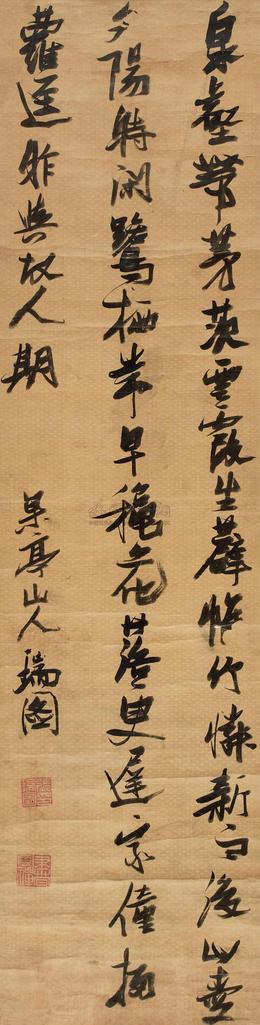 泉壑帶茅茨雲霞生薜帷竹憐新雨後山愛
夕陽時閑鷺栖常早穐花落更遲家僮掃
蘿逕昨與故人期
果亭山人瑞圖